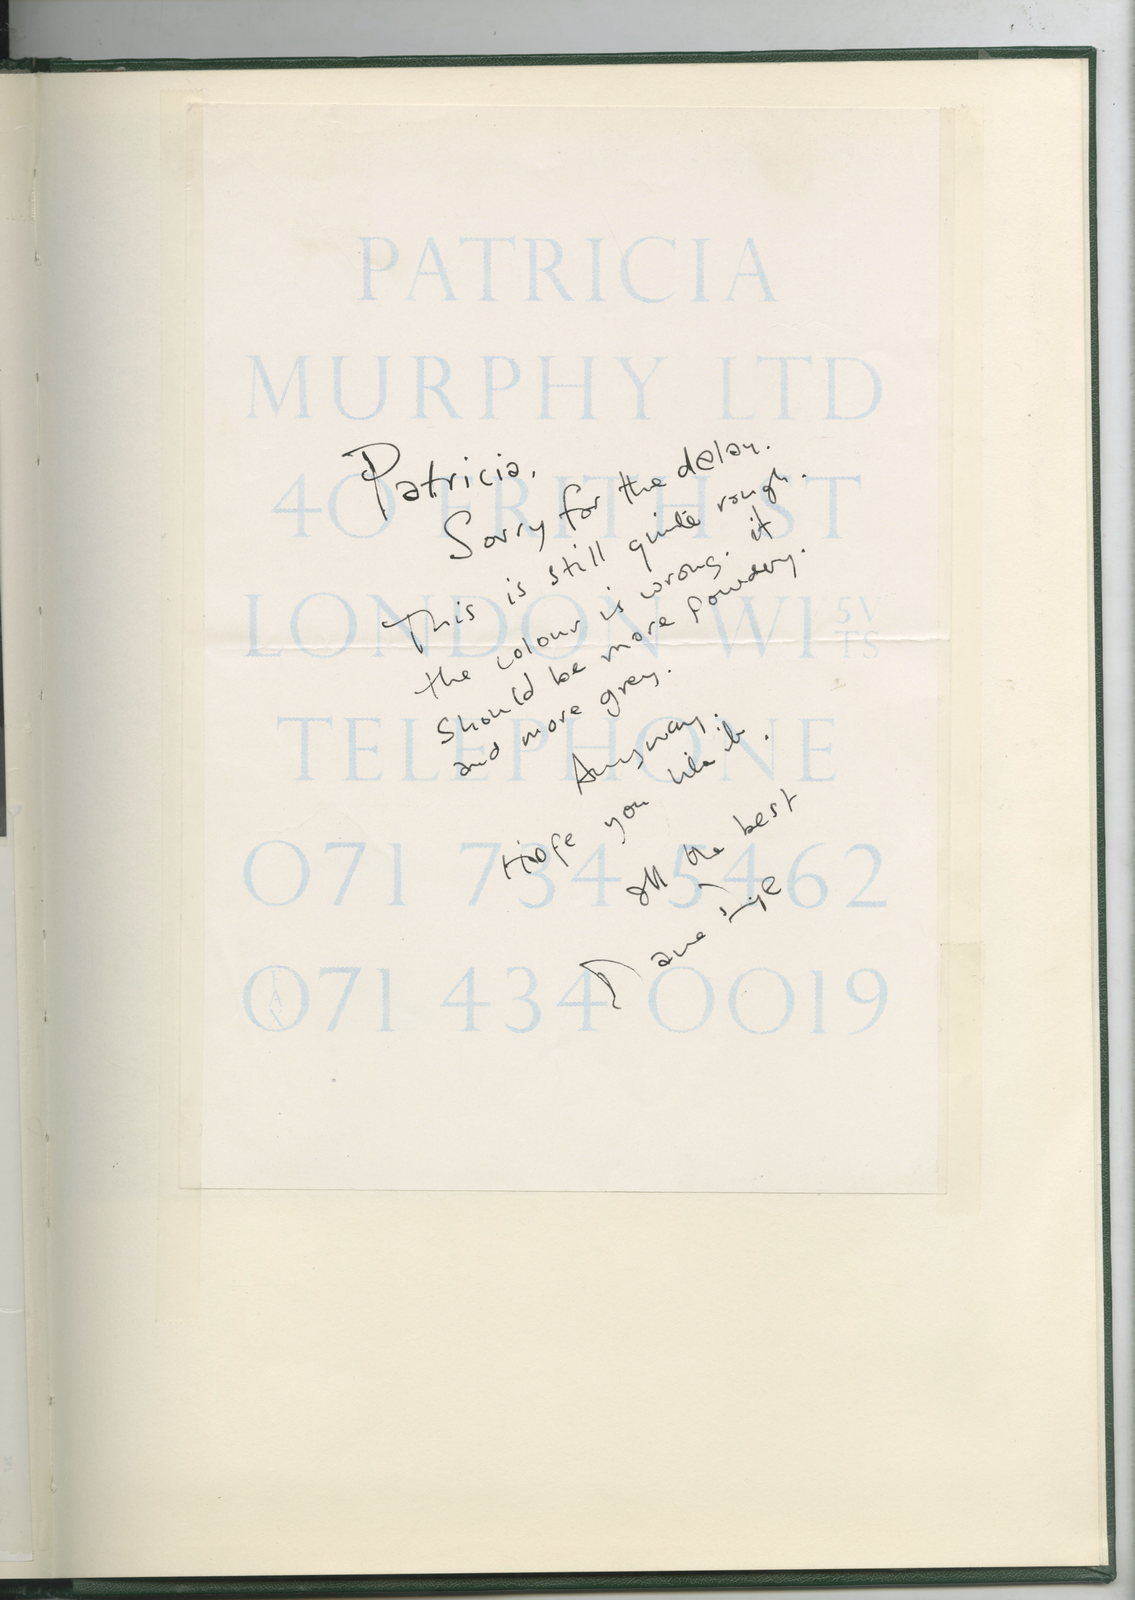 PATRICIA
MURPHY LTD
40 FRITH ST
LONDON W1 5V TS
TELEPHONE
071 734 5462
071 434 0019
FAX
Patricia.
Sorry for the delay.
This is still quite rough.
the colour is wrong. it
should be more powdery.
and more grey.
Anyway.
Hope you like it.
all the best